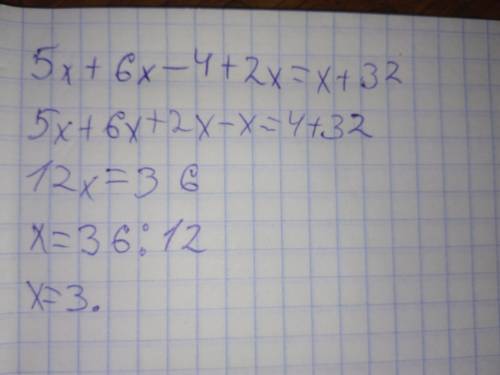 5x+6x-4+2x=x+32
5x+6x+2x-x=4+32
12x=36
x=36:12
x=3.